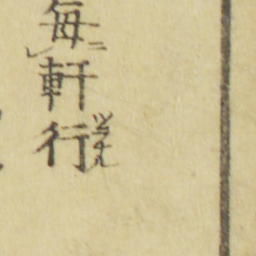 毎ニ軒行